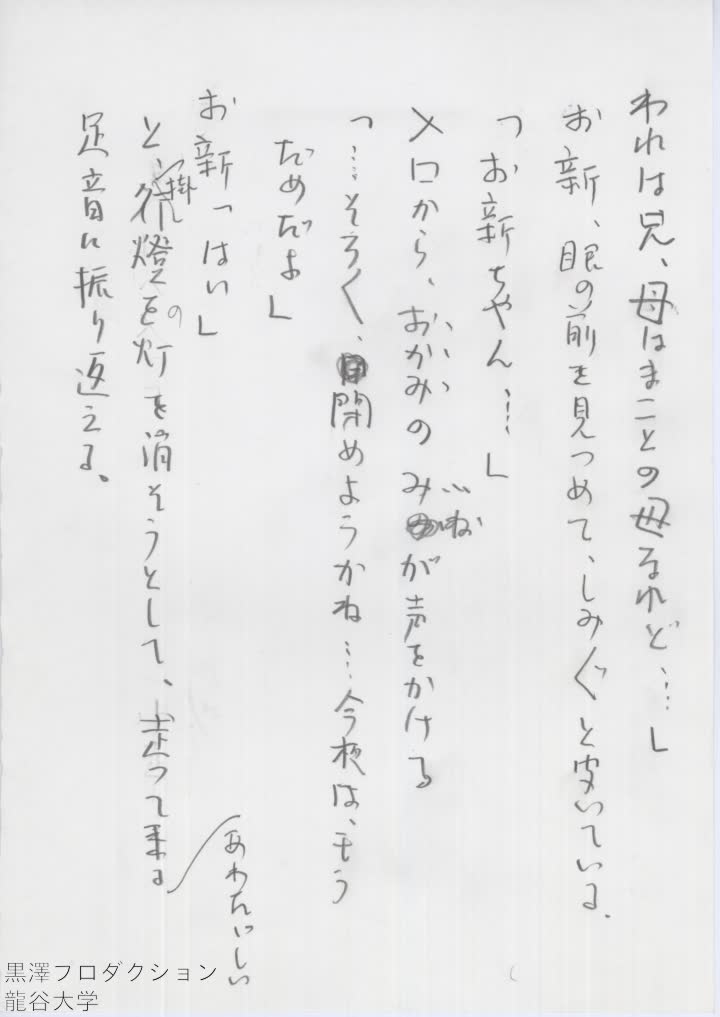 われは兄、母はまことの母なれど…」
お新、眼の前を見つめて、しみ〴〵と呟いている。
「お新ちゃん…」
入口から、おかみのみねが声をかける
「…そろ〳〵、閉めようかね…今夜は、もう
だめだよ」
お新「はい」
と、掛燈の灯を消そうとして、走って来る
あわたゞしい
足音に振り返える。
黒澤プロダクション
龍谷大学